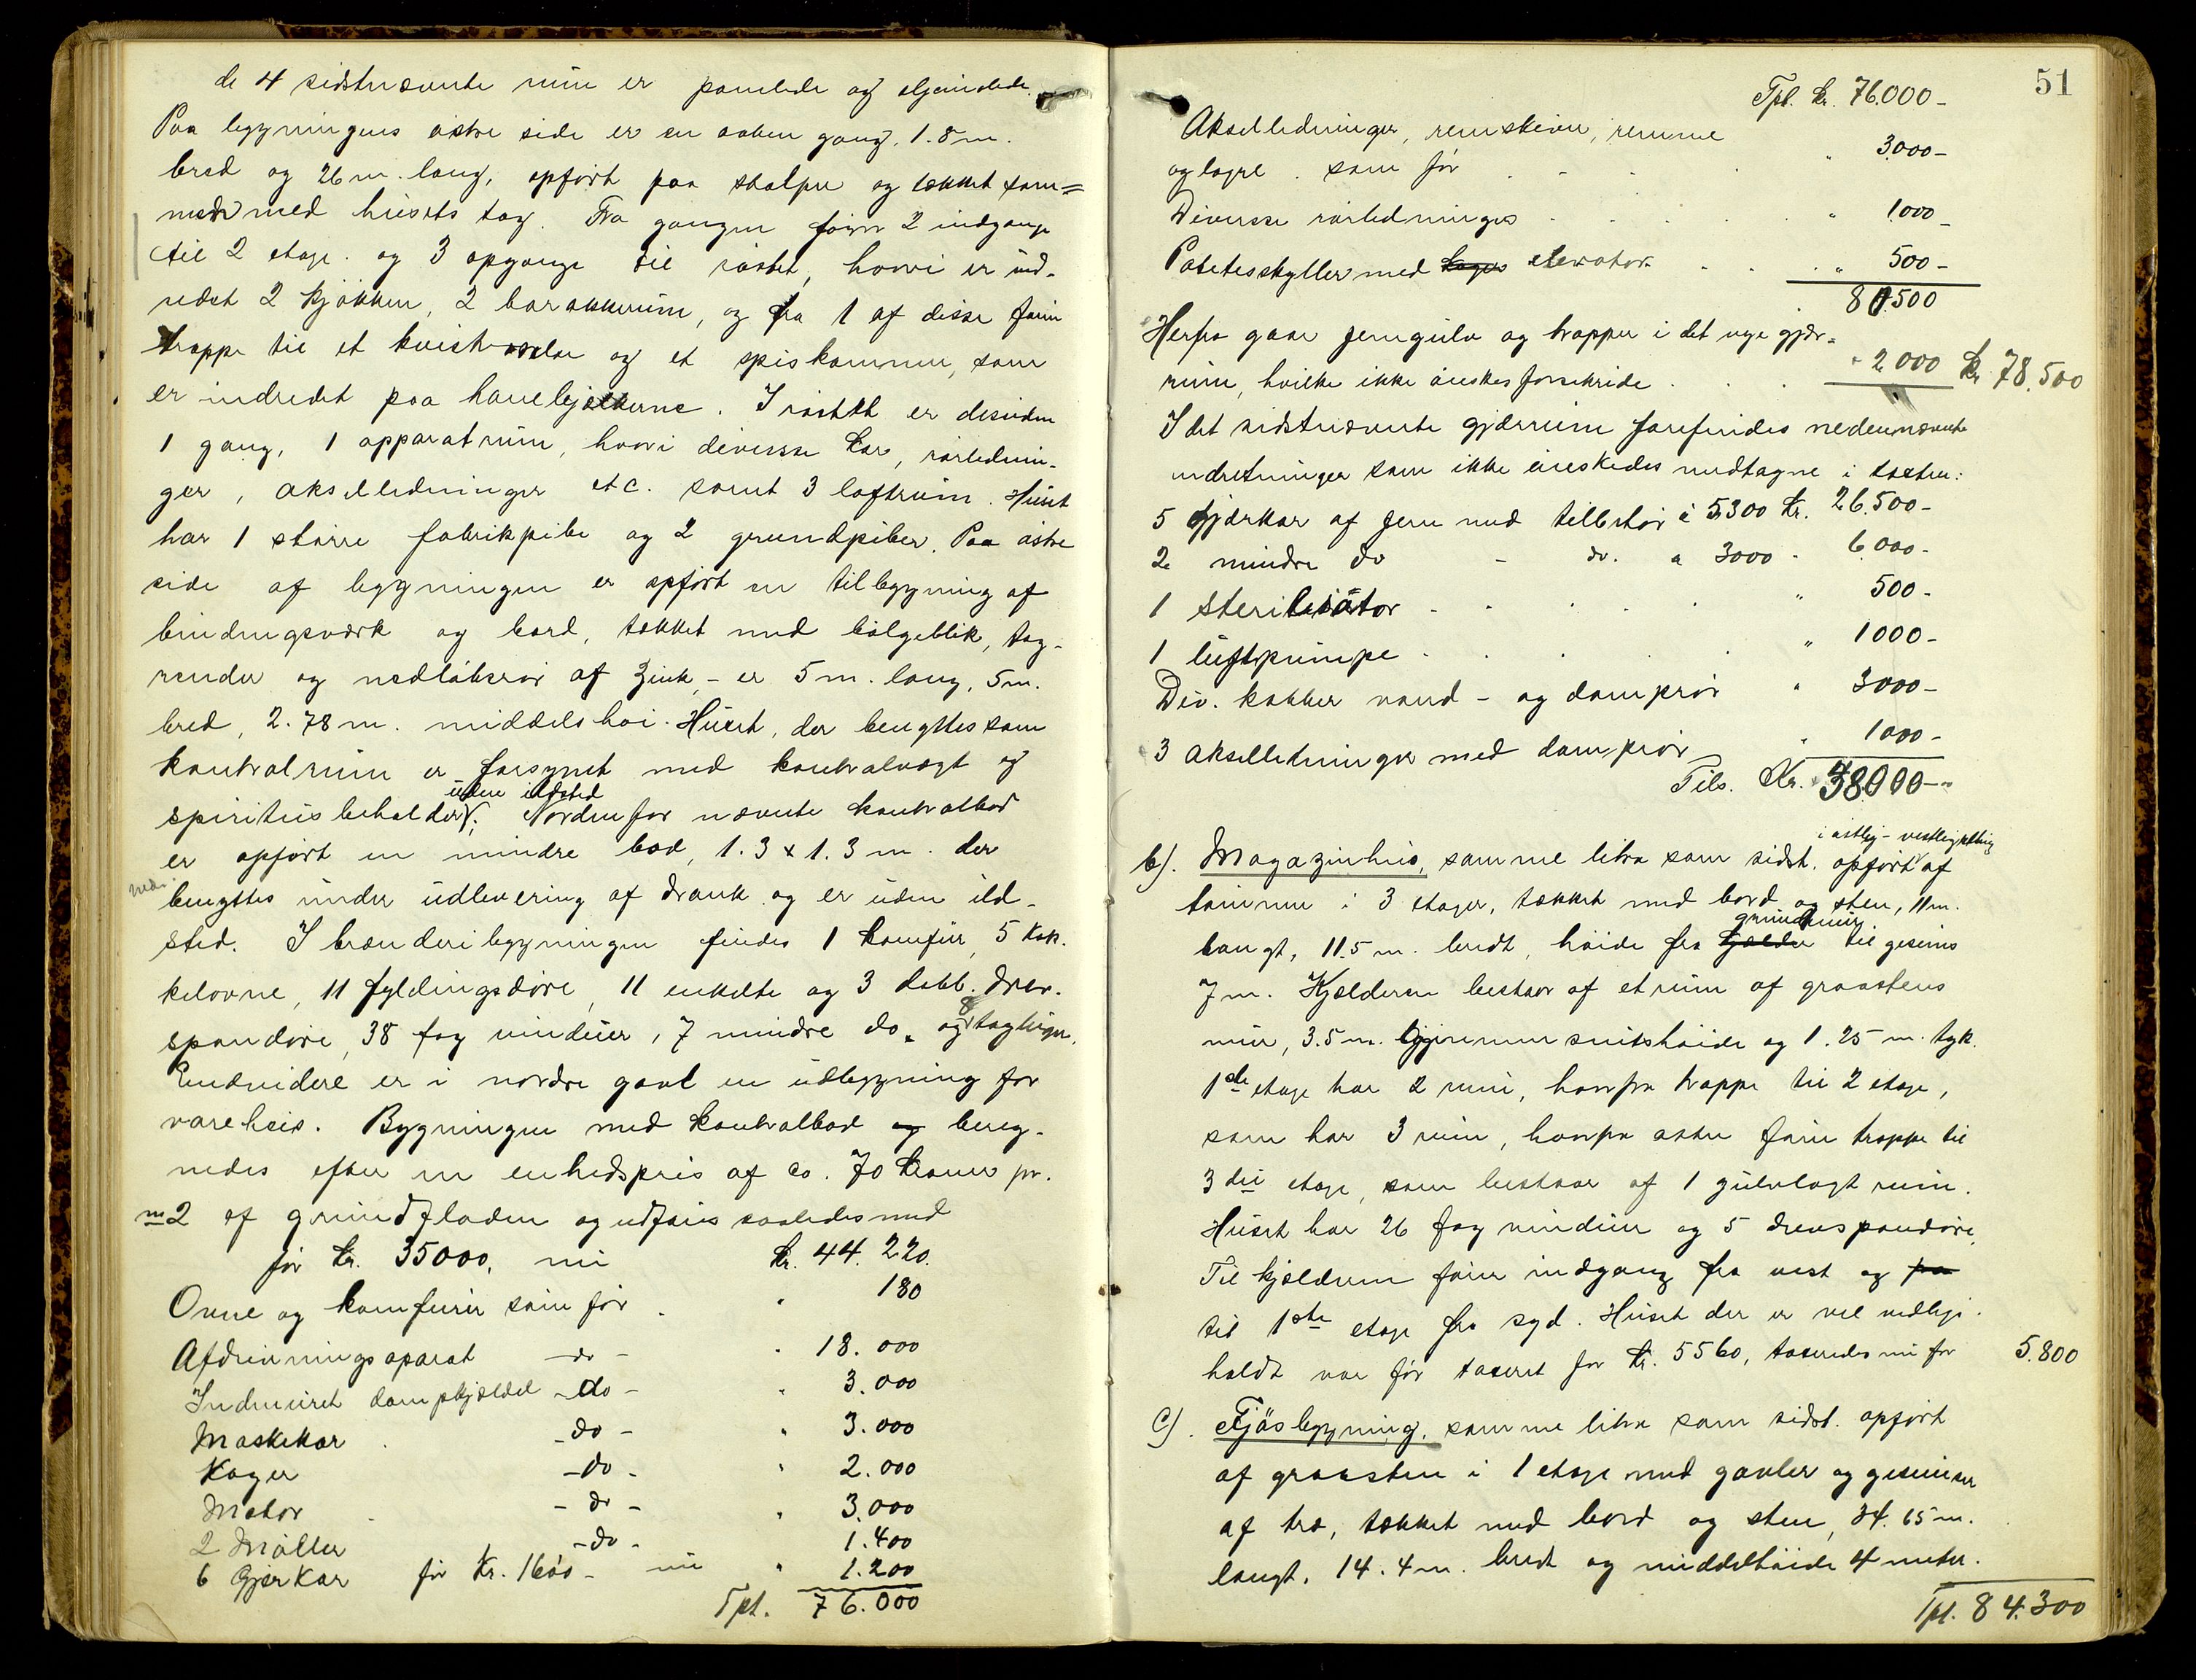 de 4 sidstnævnte rum er panelede og oljemalede.
Paa bygningens østre side er en aaben gang, 1.8 m.
bred og 26 m. lang, opført paa stolper og tækket sam=
men med husets tag. Fra gangen fører 2 indgange
til 2 etage og 3 opgange til røstet, hvori er ind-
redet 2 kjøkken, 2 barakkerum, og fra 1 af disse fører
trappe til et kvistværelse og et spiskammer, som
er indredet paa hanebjelkerne. I røstet er desuden
1 gang, 1 apparatrum, hvori diverse kar, rørlednin-
ger, akselledninger etc. samt 3 loftrum. Huset
har 1 større fabrikpibe og 2 grundpiber. Paa østre
side af bygningen er opført en tilbygning af
bindingsværk og bord, tækket med bølgeblik, tag-
render og nedløbsrør af zink, - er 5 m. lang, 5 m.
bred, 2.78 m. middels høi. Huset, der benyttes som
kontrolrum er forsynet med kontrolvægt og
uden ildsted
spiritusbeholder; Nordenfor nævnte kontrolbod
er opført en mindre bod, 1.3 x 1.3 m. der
benyttes under udlevering af drank og er uden ild-
sted. I brænderibygningen findes 1 komfur, 5 kak-
kelovne, 11 fyldingsdøre, 11 enkelte og 3 dobb. drev-
8
spandøre, 38 fag vinduer, 7 mindre do. og taglugar.
Endvidere er i nordre gavl en udbygning for
vareheis. Bygningen med kontrolbod og bereg-
nedes efter en enhedspris af ca. 70 kroner pr.
m2 af grundfladen og udføres saaledes med
før kr. 35000, nu kr. 44.220.
Ovne og komfurer som før " 180
Afdrivningsaparat - do - " 18.000
Indmuret dampkjædel - do - " 3.000
Maskekar - do - " 3.000
Koger - do - " 2.000
Motor - do - " 3.000
2 Møller - do - 1.400
6 Gjærkar før Kr. 1600 - nu " 1.200
Tpt. 76.000
51
Tpt. kr. 76.000-
Akselledninger, remskiver, remme
og lagre som før " 3.000-
Diverse rørledninger " 1000-
Potetesskyller med koger elevator " 500-
80.500
Herfra gaar jerngulv og trapper i det nye gjær-
rum, hvilke ikke ønskes forsikride - 2.000 kr 78.500
I det sidstnævnte gjærrum forefindes nedennævnte
indretninger som ikke ønskedes medtagne i taxten:
5 gjærkar af jern med tilbehør á 5300 kr. 26.500-
2 mindre do - do. a 3000 - 6.000-
1 sterilisator " 500-
1 luftpumpe " 1000-
Div. kobber vand- og damprør " 3000-
3 akselledninger med damprør " 1000-
Tils. Kr. 38000-"
i østlig-vestlig retning
b). Magazinhus, samme litra som sidst. opført af
tømmer i 3 etager, tækket med bord og sten, 11 m.
grundmur
langt, 11.5 m. bredt, høide fra kjælder til gesims
7 m. Kjælderen bestaar af et rum af graastens
mur, 3.5 m. gjennemsnitshøide og 1.25 m. tyk.
1ste etage har 2 rum, hvorfra trappe til 2 etage,
som har 3 rum, hvorfra atter fører trappe til
3die etage, som bestaar af 1 gulvlagt rum.
Huset har 26 fag vinduer og 5 drevspandøre.
Til kjælderen fører indgang fra vest og fra
til 1ste etage fra syd. Huset der er vel vedlige-
holdt var før taxeret for kr. 5560, taxeredes nu for 5.800
c). Fjøsbygning, samme litra som sidst. opført
af graasten i 1 etage med gavler og gesimser
af træ, tækket med bord og sten, 34.65 m.
langt, 14.4 m. bredt og middelhøide 4 meter.
Tpt. 84.300